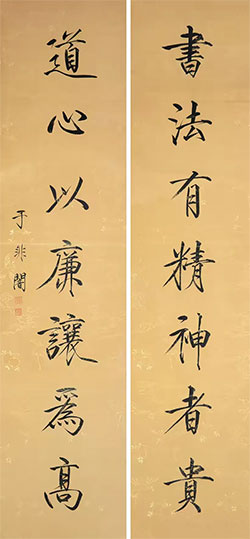 書法有精神者貴
道心以廉讓爲高
于非闇